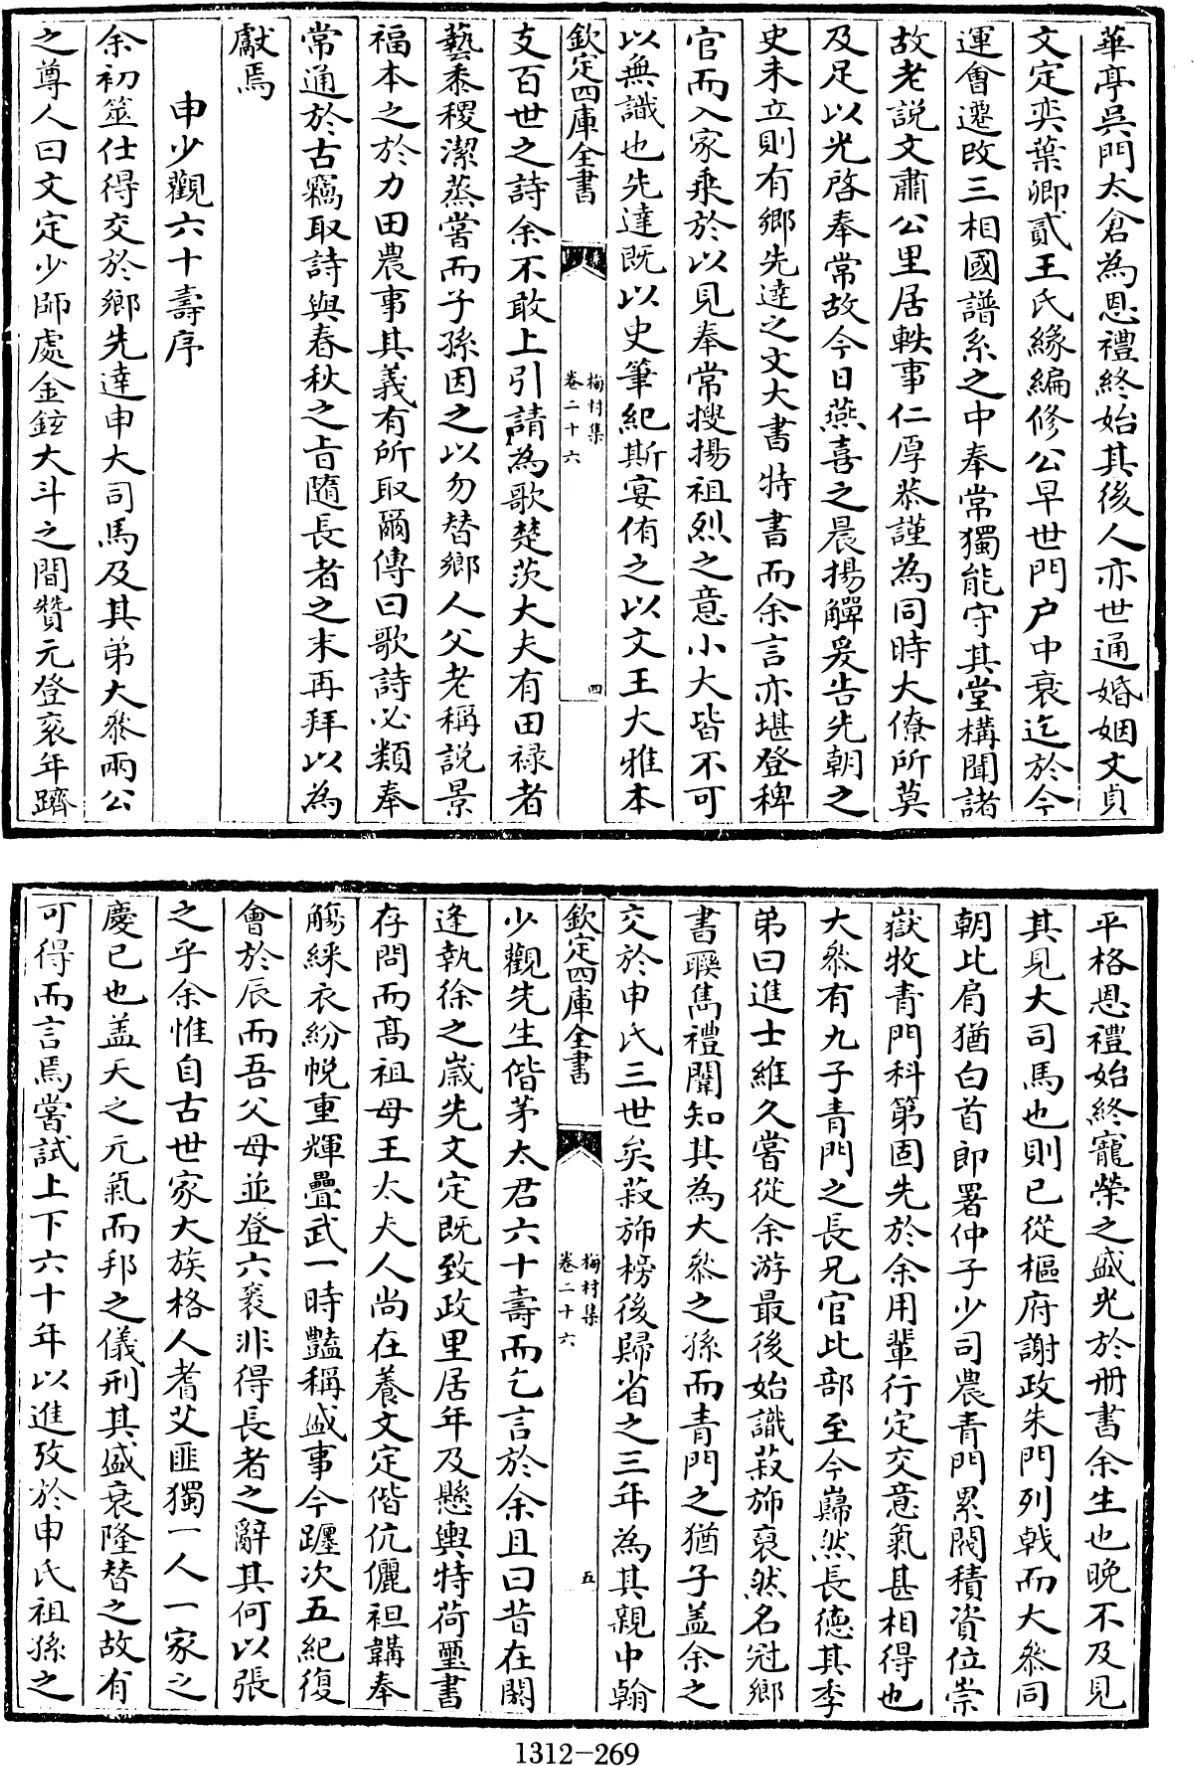 華亭吳門太倉為恩禮終始其後人亦世通婚姻文貞
文定奕葉卿貳王氏緣編修公早世門户中衰迄於今
運會遷改三相國譜系之中奉常獨能守其堂構聞諸
故老說文肅公里居軼事仁厚恭謹為同時大僚所莫
及足以光啓奉常故今日燕喜之晨揚觶爰告先朝之
史未立則有鄉先達之文大書特書而余言亦堪登稗
官而入家乘於以見奉常搜揚祖烈之意小大皆不可
以無識也先達既以史筆紀斯宴侑之以文王大雅本
欽定四庫全書
梅村集
卷二十六
四
支百世之詩余不敢上引請為歌楚茨大夫有田祿者
藝黍稷潔蒸嘗而子孫因之以勿替鄉人父老稱說景
福本之於力田農事其義有所取爾傳曰歌詩必類奉
常通於古竊取詩與春秋之旨隨長者之末再拜以為
獻焉
申少觀六十壽序
余初筮仕得交於鄉先達申大司馬及其弟大叅兩公
之尊人曰文定少師處金鉉大斗之間贊元登衮年躋
平格恩禮始終寵榮之盛光於册書余生也晚不及見
其見大司馬也則已從樞府謝政朱門列戟而大叅同
朝比肩猶白首郎署仲子少司農青門累閥積資位崇
嶽牧青門科第固先於余用輩行定交意氣甚相得也
大叅有九子青門之長兄官比部至今巋然長德其季
弟曰進士維久嘗從余游最後始識菽斾裒然名冠鄉
書聯雋禮闈知其為大叅之孫而青門之猶子盖余之
交於申氏三世矣菽斾榜後歸省之三年為其親中翰
欽定四庫全書
梅村集
卷二十六
五
少觀先生偕茅太君六十壽而乞言於余且曰昔在閼
逢執徐之歲先文定既致政里居年及懸輿特荷璽書
存問而髙祖母王太夫人尚在養文定偕伉儷袒韝奉
觴綵衣紛帨重輝疊武一時豔稱盛事今躔次五紀復
會於辰而吾父母並登六袠非得長者之辭其何以張
之乎余惟自古世家大族格人耆艾匪獨一人一家之
慶已也盖天之元氣而邦之儀刑其盛衰隆替之故有
可得而言焉嘗試上下六十年以進攷於申氏祖孫之
1312-269